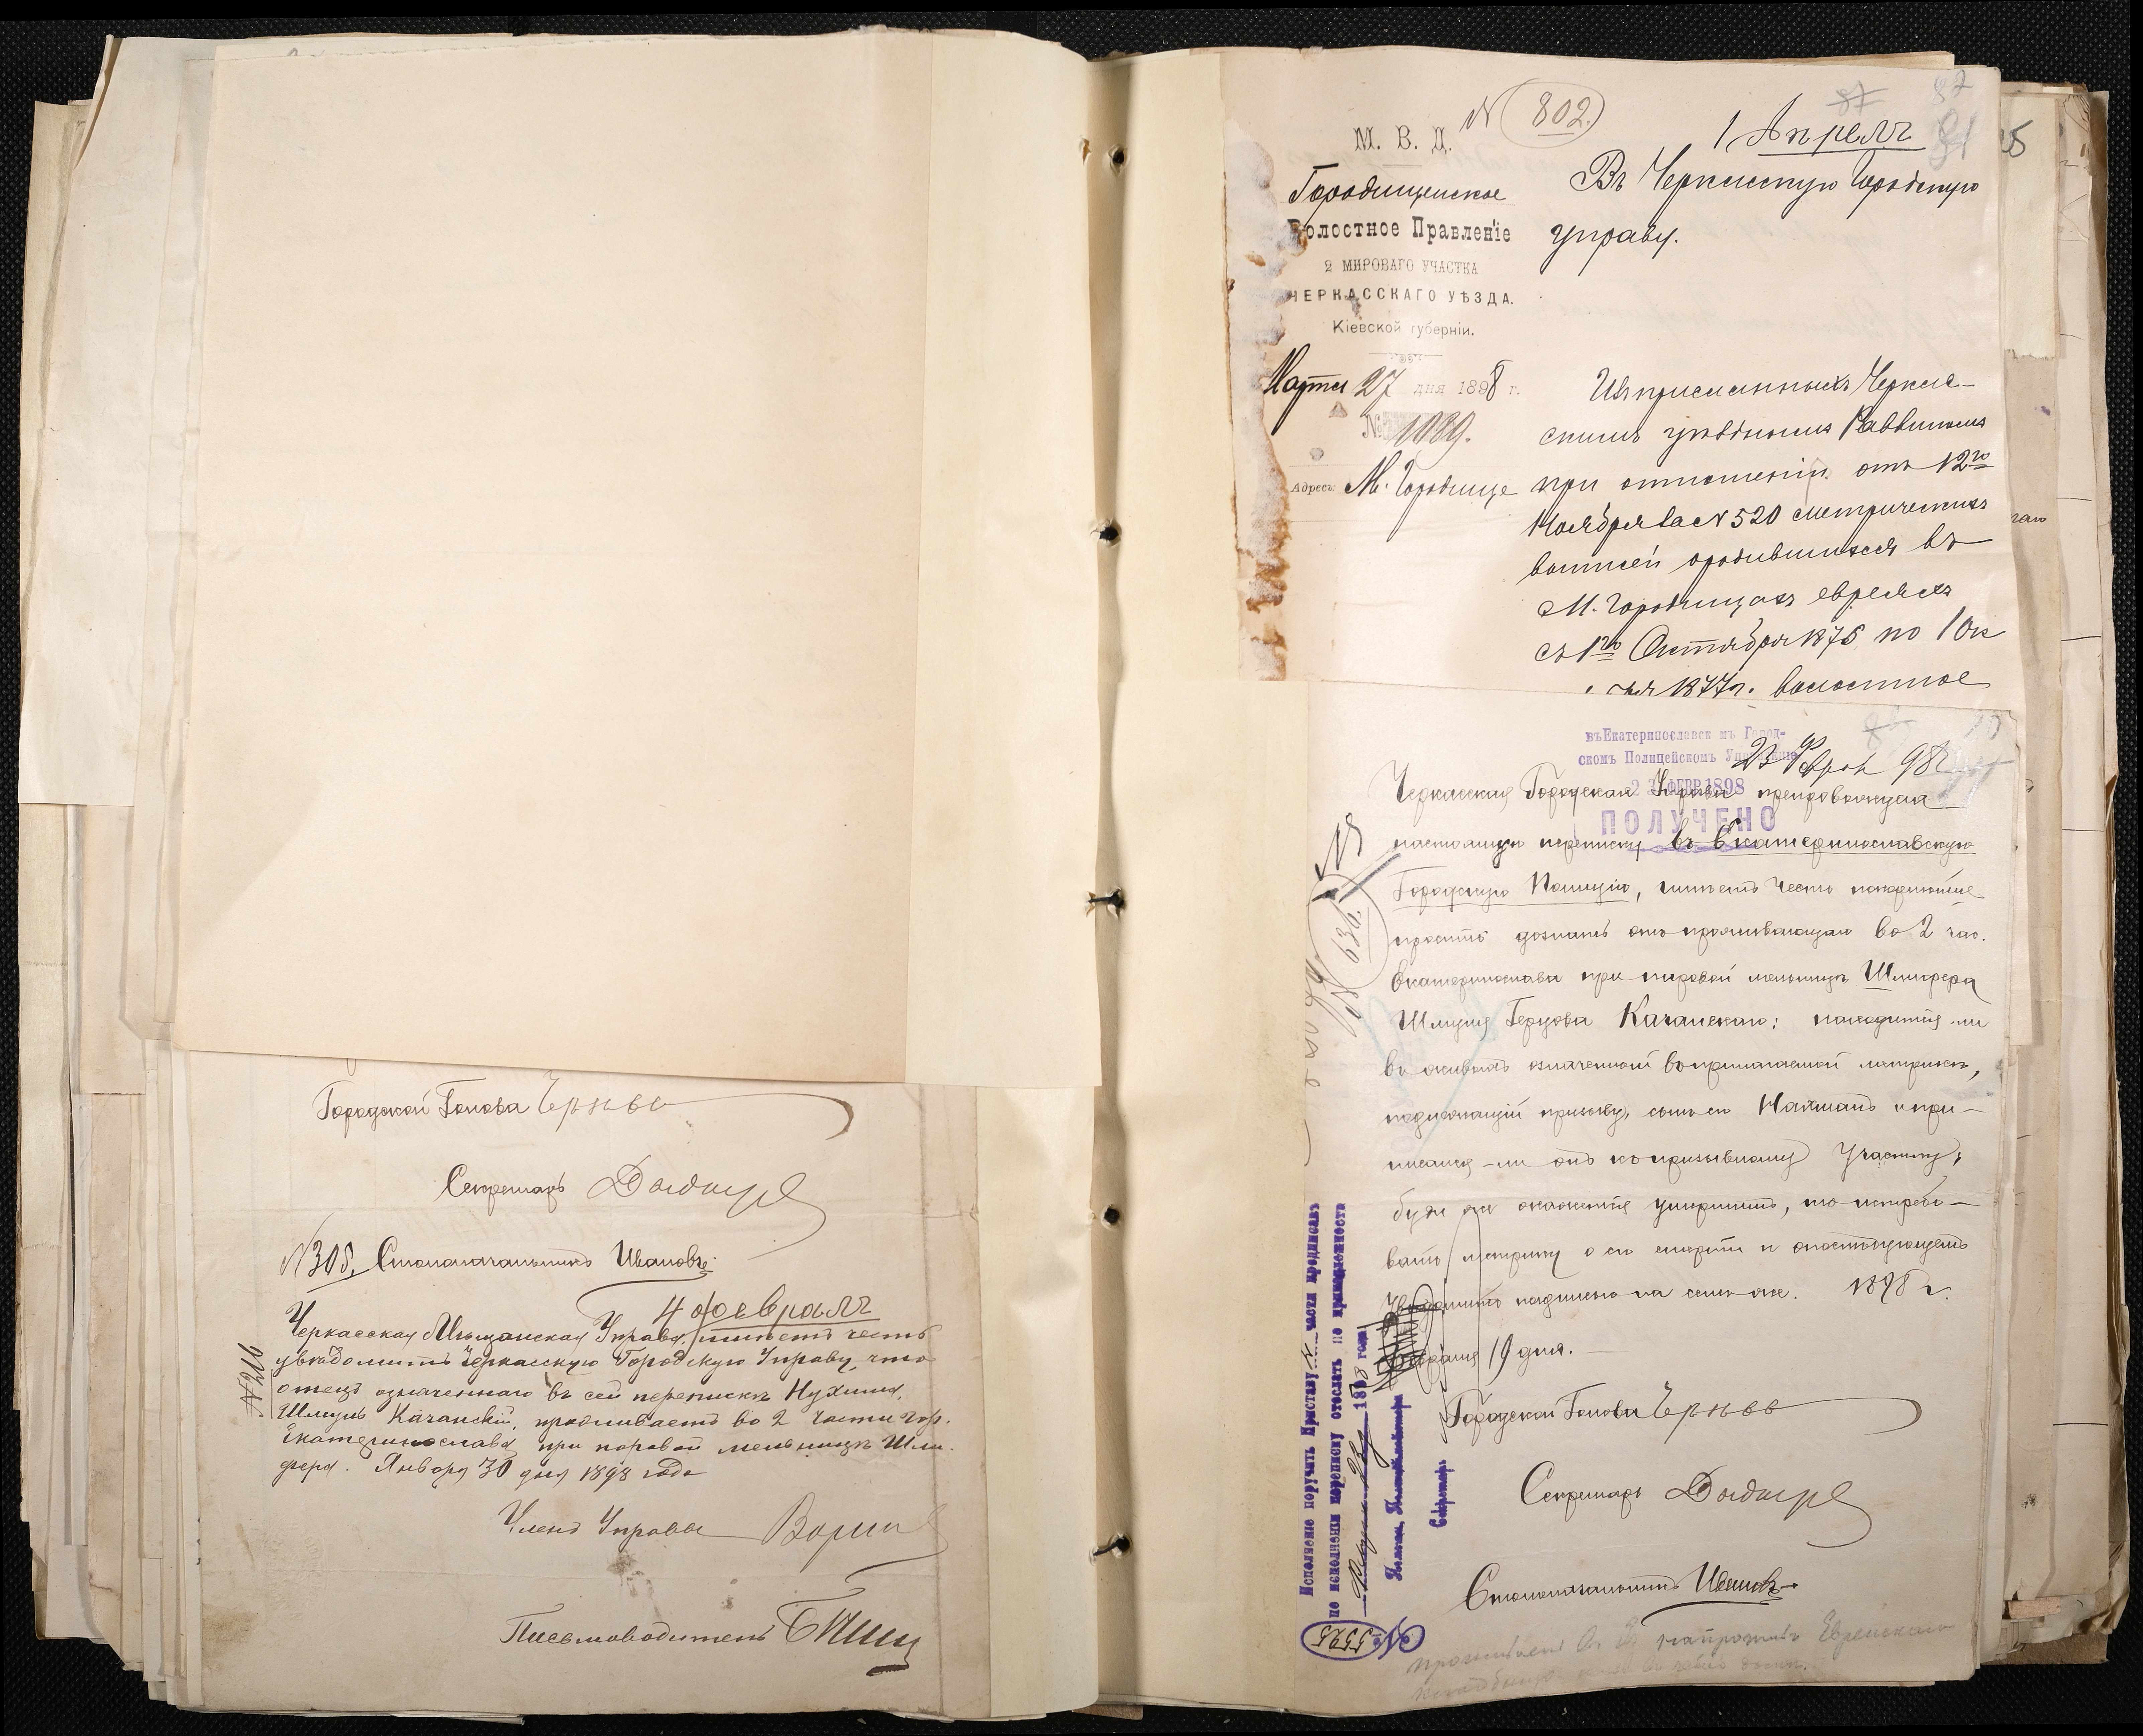 Городской Голова
Секретарь
№ 308. Столоначальникъ Ивановъ
4 февраля
Черкасская Мѣщанская Управа имѣетъ честь
увѣдомить Черкасскую Городскую Управу, что
отецъ означеннаго въ сей перепискѣ Нухима,
Шмуль Качанскій, проживаетъ во 2 части гор.
Екатеринослава при паровой мельницѣ Шли-
фера. Января 30 дня 1898 года
№ 216
Членъ Управы
Письмоводитель
№ 802.
1 Апреля
М. В. Д.
Городищенское
Волостное Правленіе
2 МИРОВАГО УЧАСТКА
ЧЕРКАССКАГО УѢЗДА.
Кіевской губерніи.
Марта 27 дня 1898 г.
№ 1089.
Адресъ: М. Городище
Въ Черкасскую Городскую
управу.
Изъ присланныхъ Черкас-
скимъ уѣзднымъ Раввиномъ
при отношеніи отъ 12го
Ноября за № 520 метрическихъ
выписей о родившихся въ
М. Городищахъ евреяхъ
съ 1го Октября 1876 по 1 Ок
1877 г. волостное
въ Екатеринославск мъ Город-
скомъ Полицейскомъ Управленіи
23 Февр 98
ФЕВР. 1898
ПОЛУЧЕНО
Черкасская Городская Управа препровождая
настоящую переписку въ Екатеринославскую
Городскую Полицію, имѣетъ честь покорнѣйше
просить дознать отъ проживающаго во 2 час.
Екатеринослава при паровой мельницѣ Шлифера
Шмуля Герцова Качанскаго: находится-ли
въ живыхъ означенный въ прилагаемой метрикѣ,
подлежащій призыву, сынъ его Нахманъ и при-
писанъ-ли онъ къ призывному участку;
буде же окажется умершимъ, то истребо-
вать метрику о его смерти и о послѣдующемъ
увѣдомить надписью на семъ же. 1898 г.
Февраля 19 дня.
№ 636.
Городской Голова
Секретарь
Столоначальникъ Ивановъ
Исполненіе поручить Приставу части предписавъ
по исполненіи переписку отослать по принадлежности
1898 года
Секретарь
№ 5525
проживаетъ напротивъ Еврейскаго